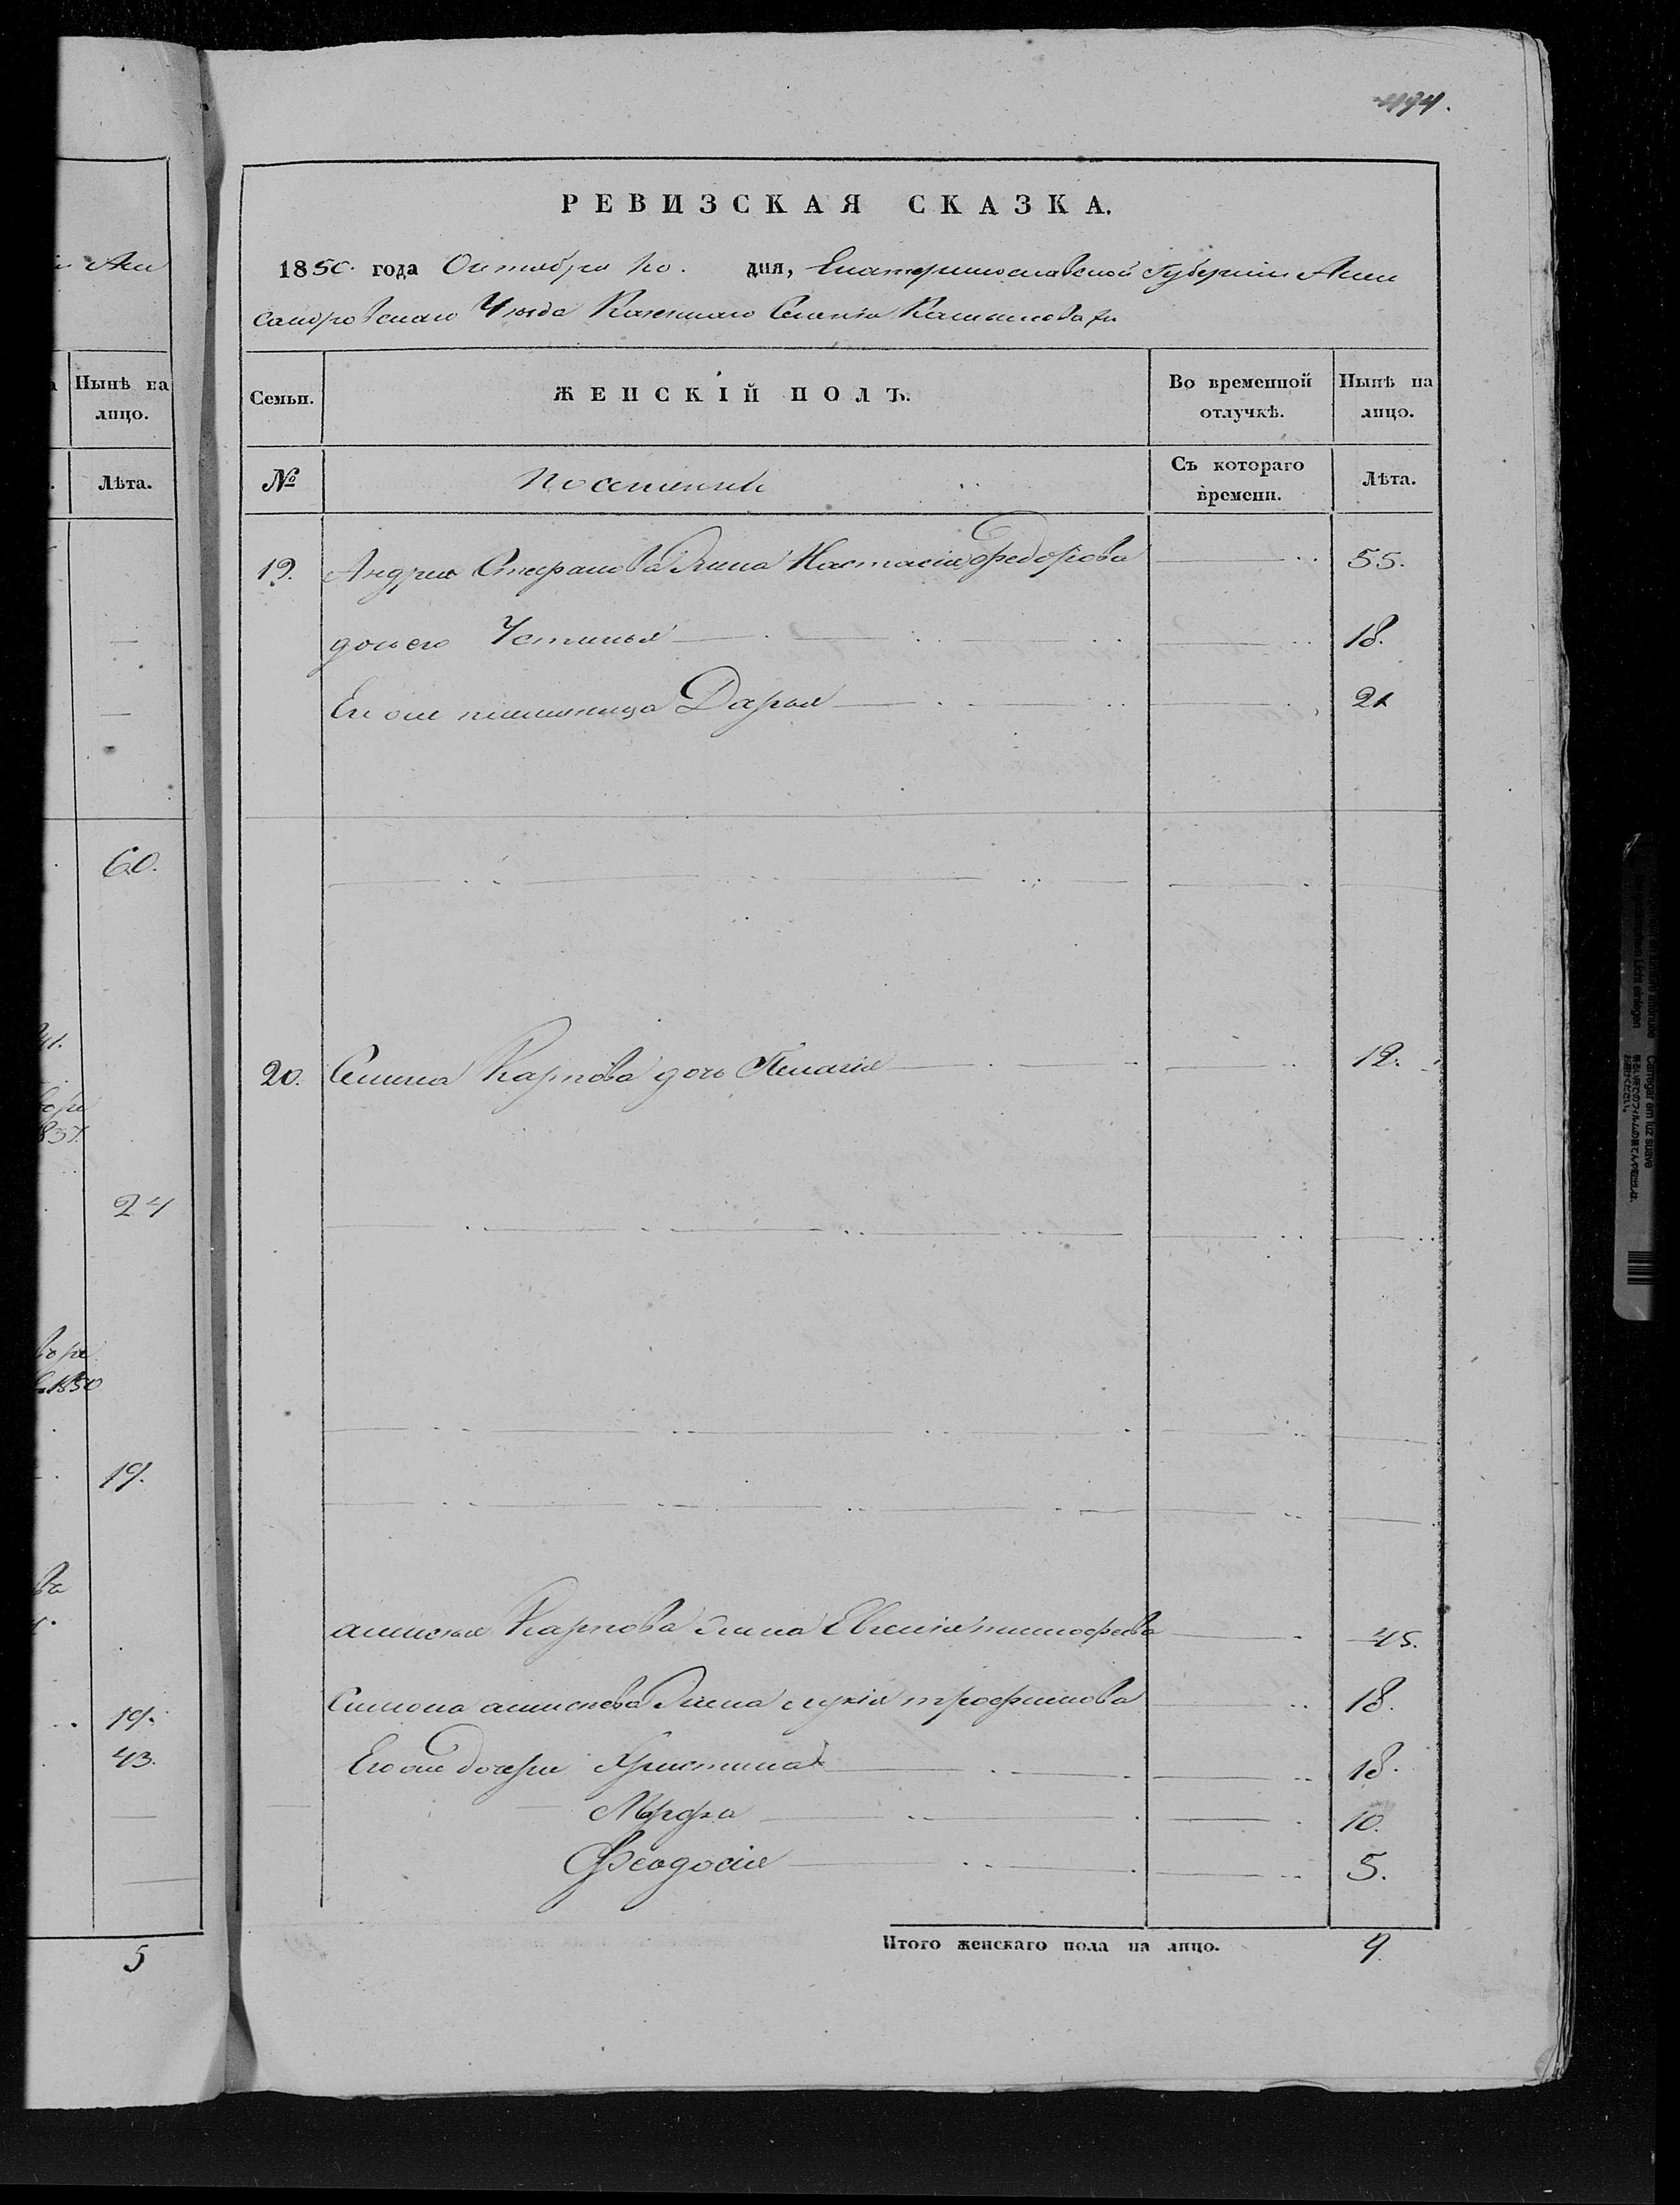 494.
РЕВИЗСКАЯ СКАЗКА.
1850. года Октября 20. дня, Екатеринославской Губернии Алек
сандровскаго Уезда Казеннаго Селенія
Семьи. ЖЕНСКІЙ ПОЛЪ. Во временной отлучкѣ. Нынѣ на лицо.
№ Поселянки Съ котораго времени. Лѣта.
19. Андрея Стефанова жена Настасія Федорова 55.
дочь его Устинья 18.
Его же племяница Дарья 21
20. Семена Карпова дочь Пелагія 12.
Алексея Карпова жена Евгенія тимофеева 45.
Симона алексеева жена лукія трофимова 18.
Его же дочери Христина 18.
Марфа 10.
Феодосія 5.
Итого женскаго пола на лицо. 9
Нынѣ на лицо.
Лѣта.
60.
24
1850
19.
19.
43.
5